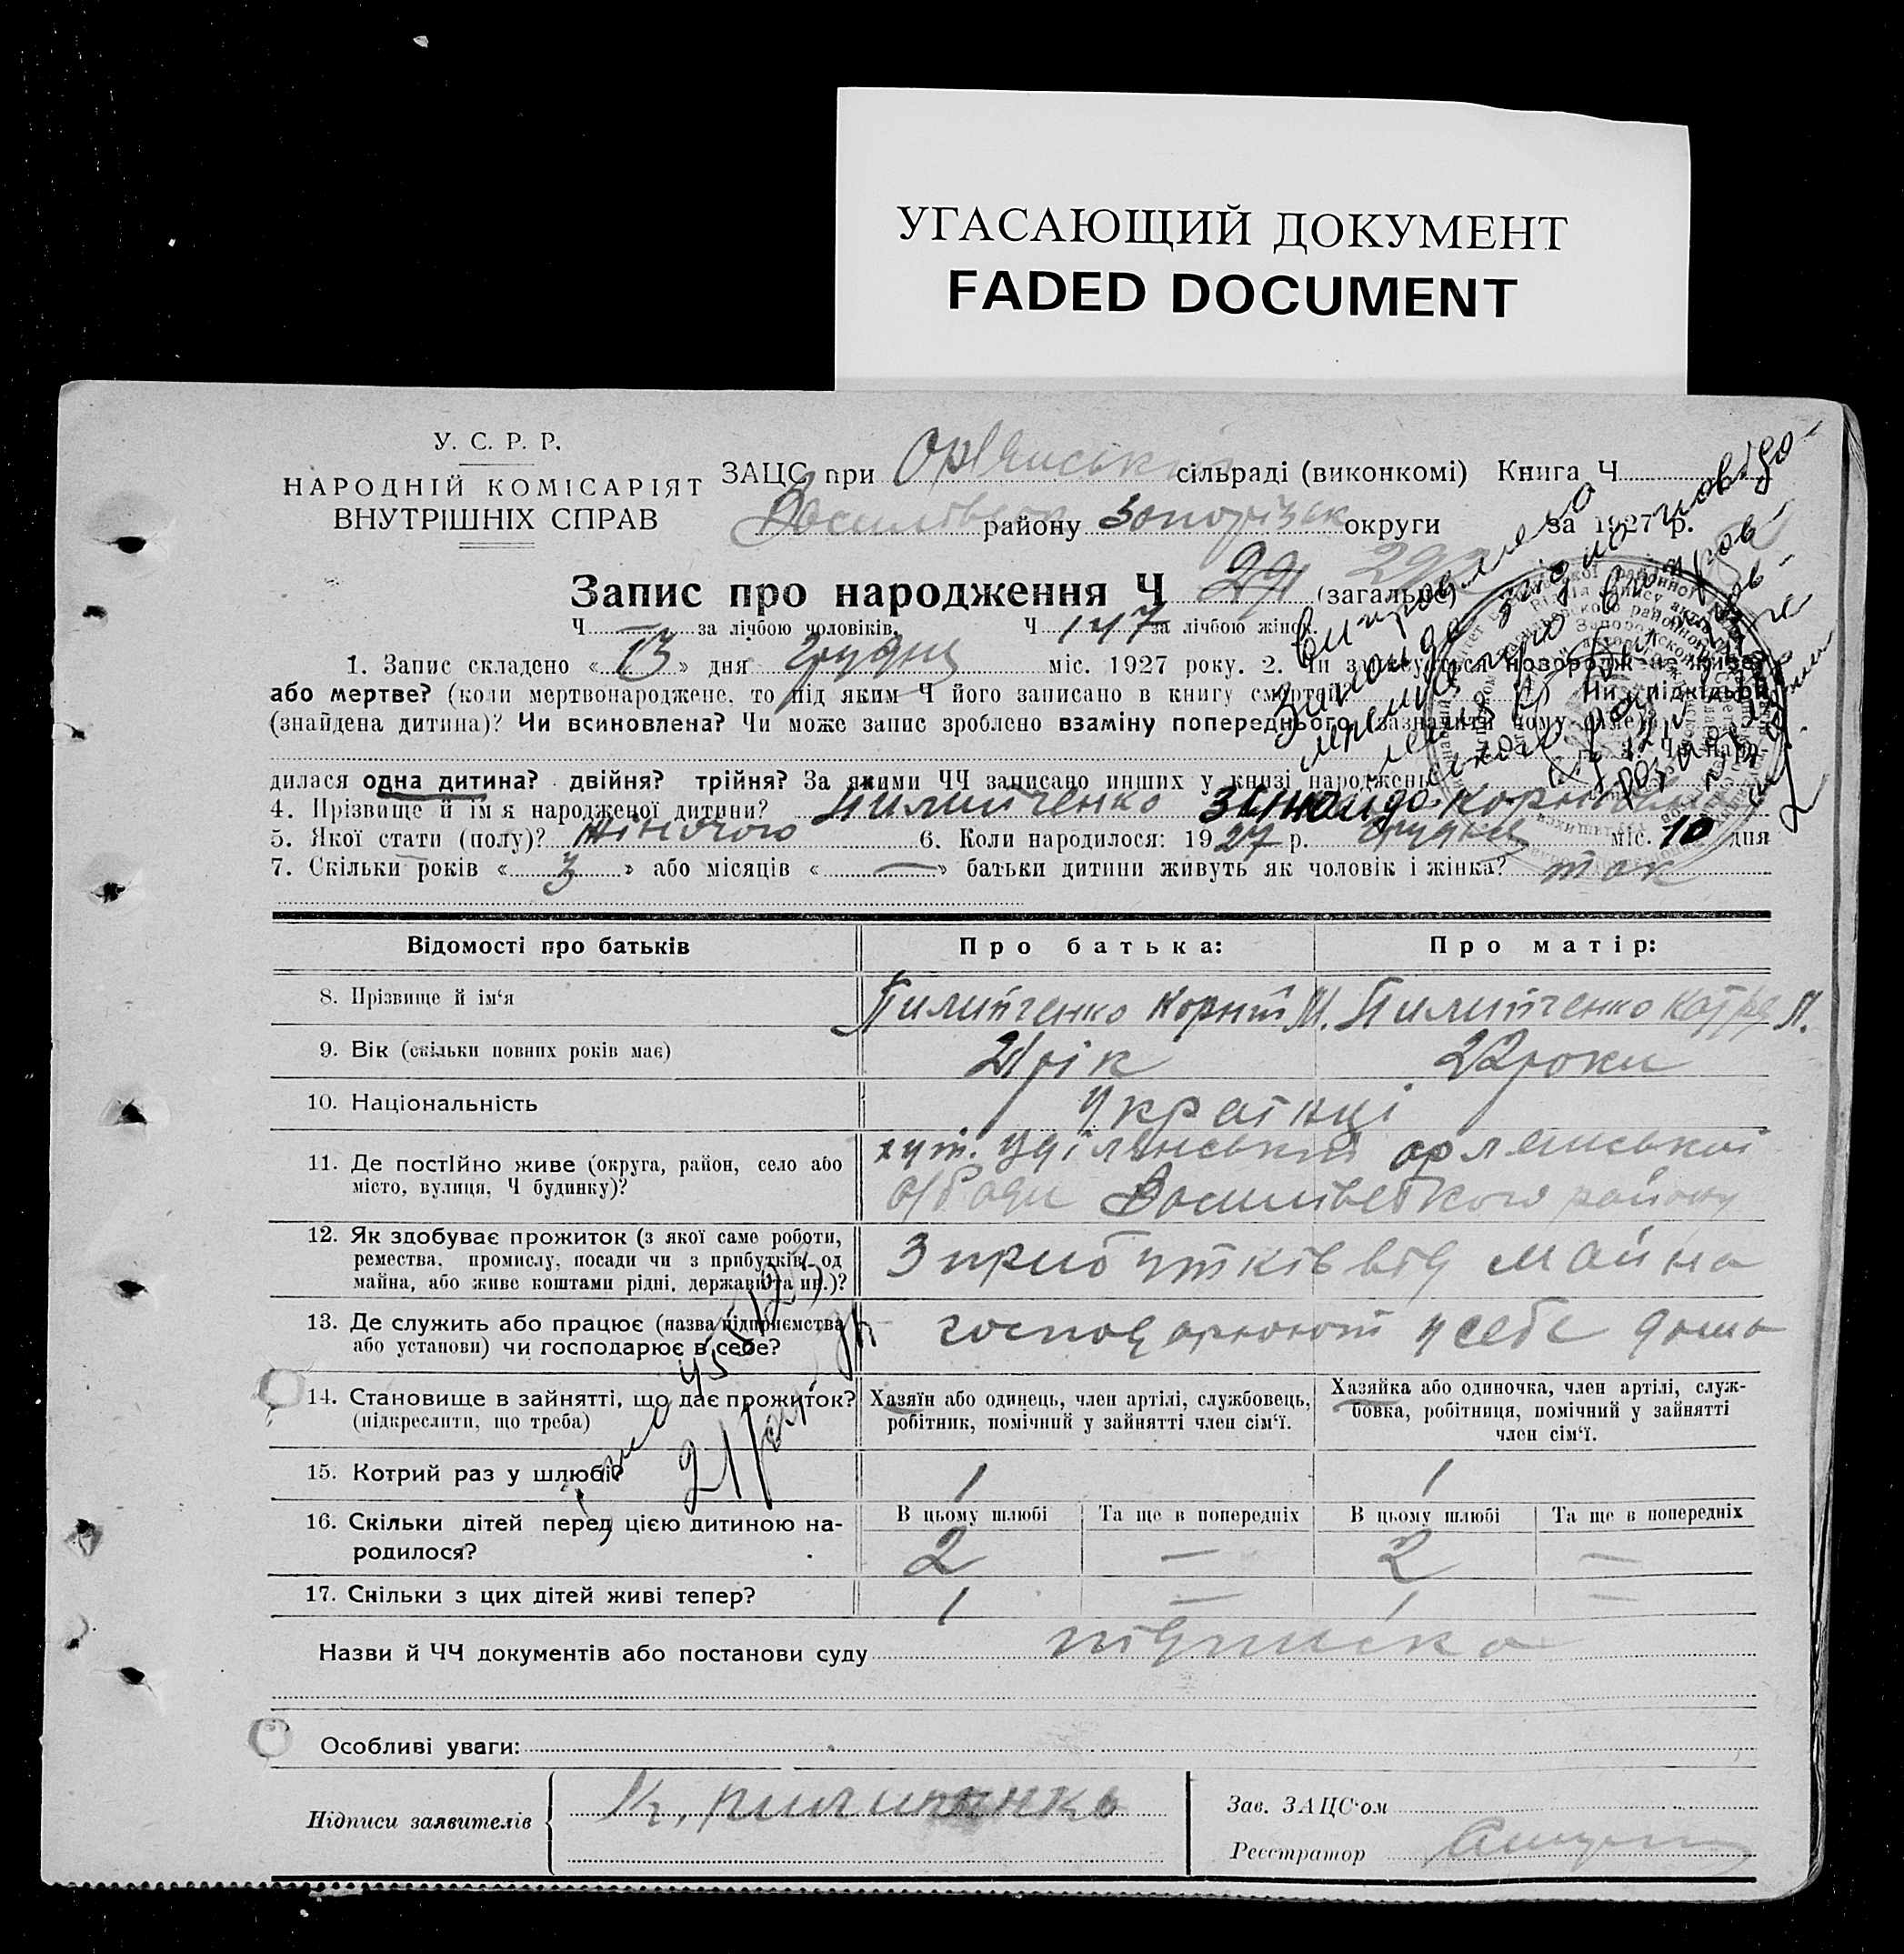 УГАСАЮЩИЙ ДОКУМЕНТ
FADED DOCUMENT
У. С. Р. Р.
НАРОДНІЙ КОМІСАРІЯТ
ВНУТРІШНІХ СПРАВ
ЗАЦС при Орлянській сільраді (виконкомі) Книга Ч
району Запорізьк округи за 1927 р.
Запис про народження Ч 291 (загальне)
Ч — за лічбою чоловіків. Ч 147 за лічбою жінок.
1. Запис складено « 13 » дня грудня міс. 1927 року. 2. Чи записується новороджене живе
або мертве? (коли мертвонароджене, то під яким Ч його записано в книгу смертей Чи підкидьок
(знайдена дитина)? Чи всиновлена? Чи може запис зроблено взаміну попереднього (зазначити чому саме)
3. Чи наро-
дилася одна дитина? двійня? трійня? За якими ЧЧ записано инших у книзі народжень
4. Прізвище й ім'я народженої дитини? Пилипченко Зинаида Корніївна
5. Якої стати (полу)? жіночого 6. Коли народилося: 1927 р. грудня міс. 10 дня
7. Скільки років « 3 » або місяців « — » батьки дитини живуть як чоловік і жінка? так
Відомості про батьків Про батька: Про матір:
8. Прізвище й ім'я Пилипченко Корній М. Пилипченко
9. Вік (скільки повних років має) 21 рік 22 роки
10. Національність Українці
11. Де постІйно живе (округа, район, село або
місто, вулиця, Ч будинку)?
хут. орлянської
с/ради Василівського району
12. Як здобуває прожиток (з якої саме роботи,
ремества, промислу, посади чи з прибутків од
майна, або живе коштами рідні, держави та ин.)?
З прибутків від майна
13. Де служить або працює (назва підприємства
або установи) чи господарює в себе?
господарюют у себе дома
14. Становище в зайнятті, що дає прожиток?
(підкреслити, що треба)
Хазяїн або одинець, член артілі, службовець,
робітник, помічний у зайнятті член сім'ї.
Хазяйка або одиночка, член артілі, служ-
бовка, робітниця, помічний у зайнятті
член сім'ї.
15. Котрий раз у шлюбі? 1 1
16. Скільки дітей перед цією дитиною на-
родилося?
В цьому шлюбі Та ще в попередніх В цьому шлюбі Та ще в попередніх
2 — 2 —
17. Скільки з цих дітей живі тепер? 1 — 1 —
Назви й ЧЧ документів або постанови суду підписка
Особливі уваги:
Підписи заявителів
Зав. ЗАЦС'ом
Реєстратор